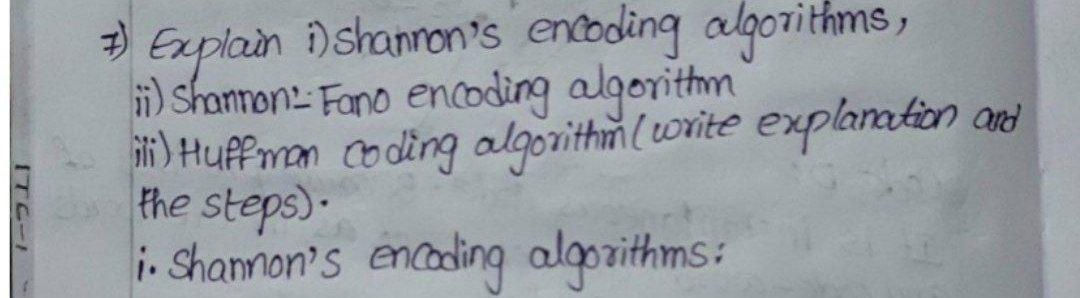 7) Explain i) Shannon's encoding algorithms,
ii) Shannon - Fano encoding algorithm
iii) Huffman coding algorithm (write explanation and
the steps).
i. Shannon's encoding algorithms:
ITC-1